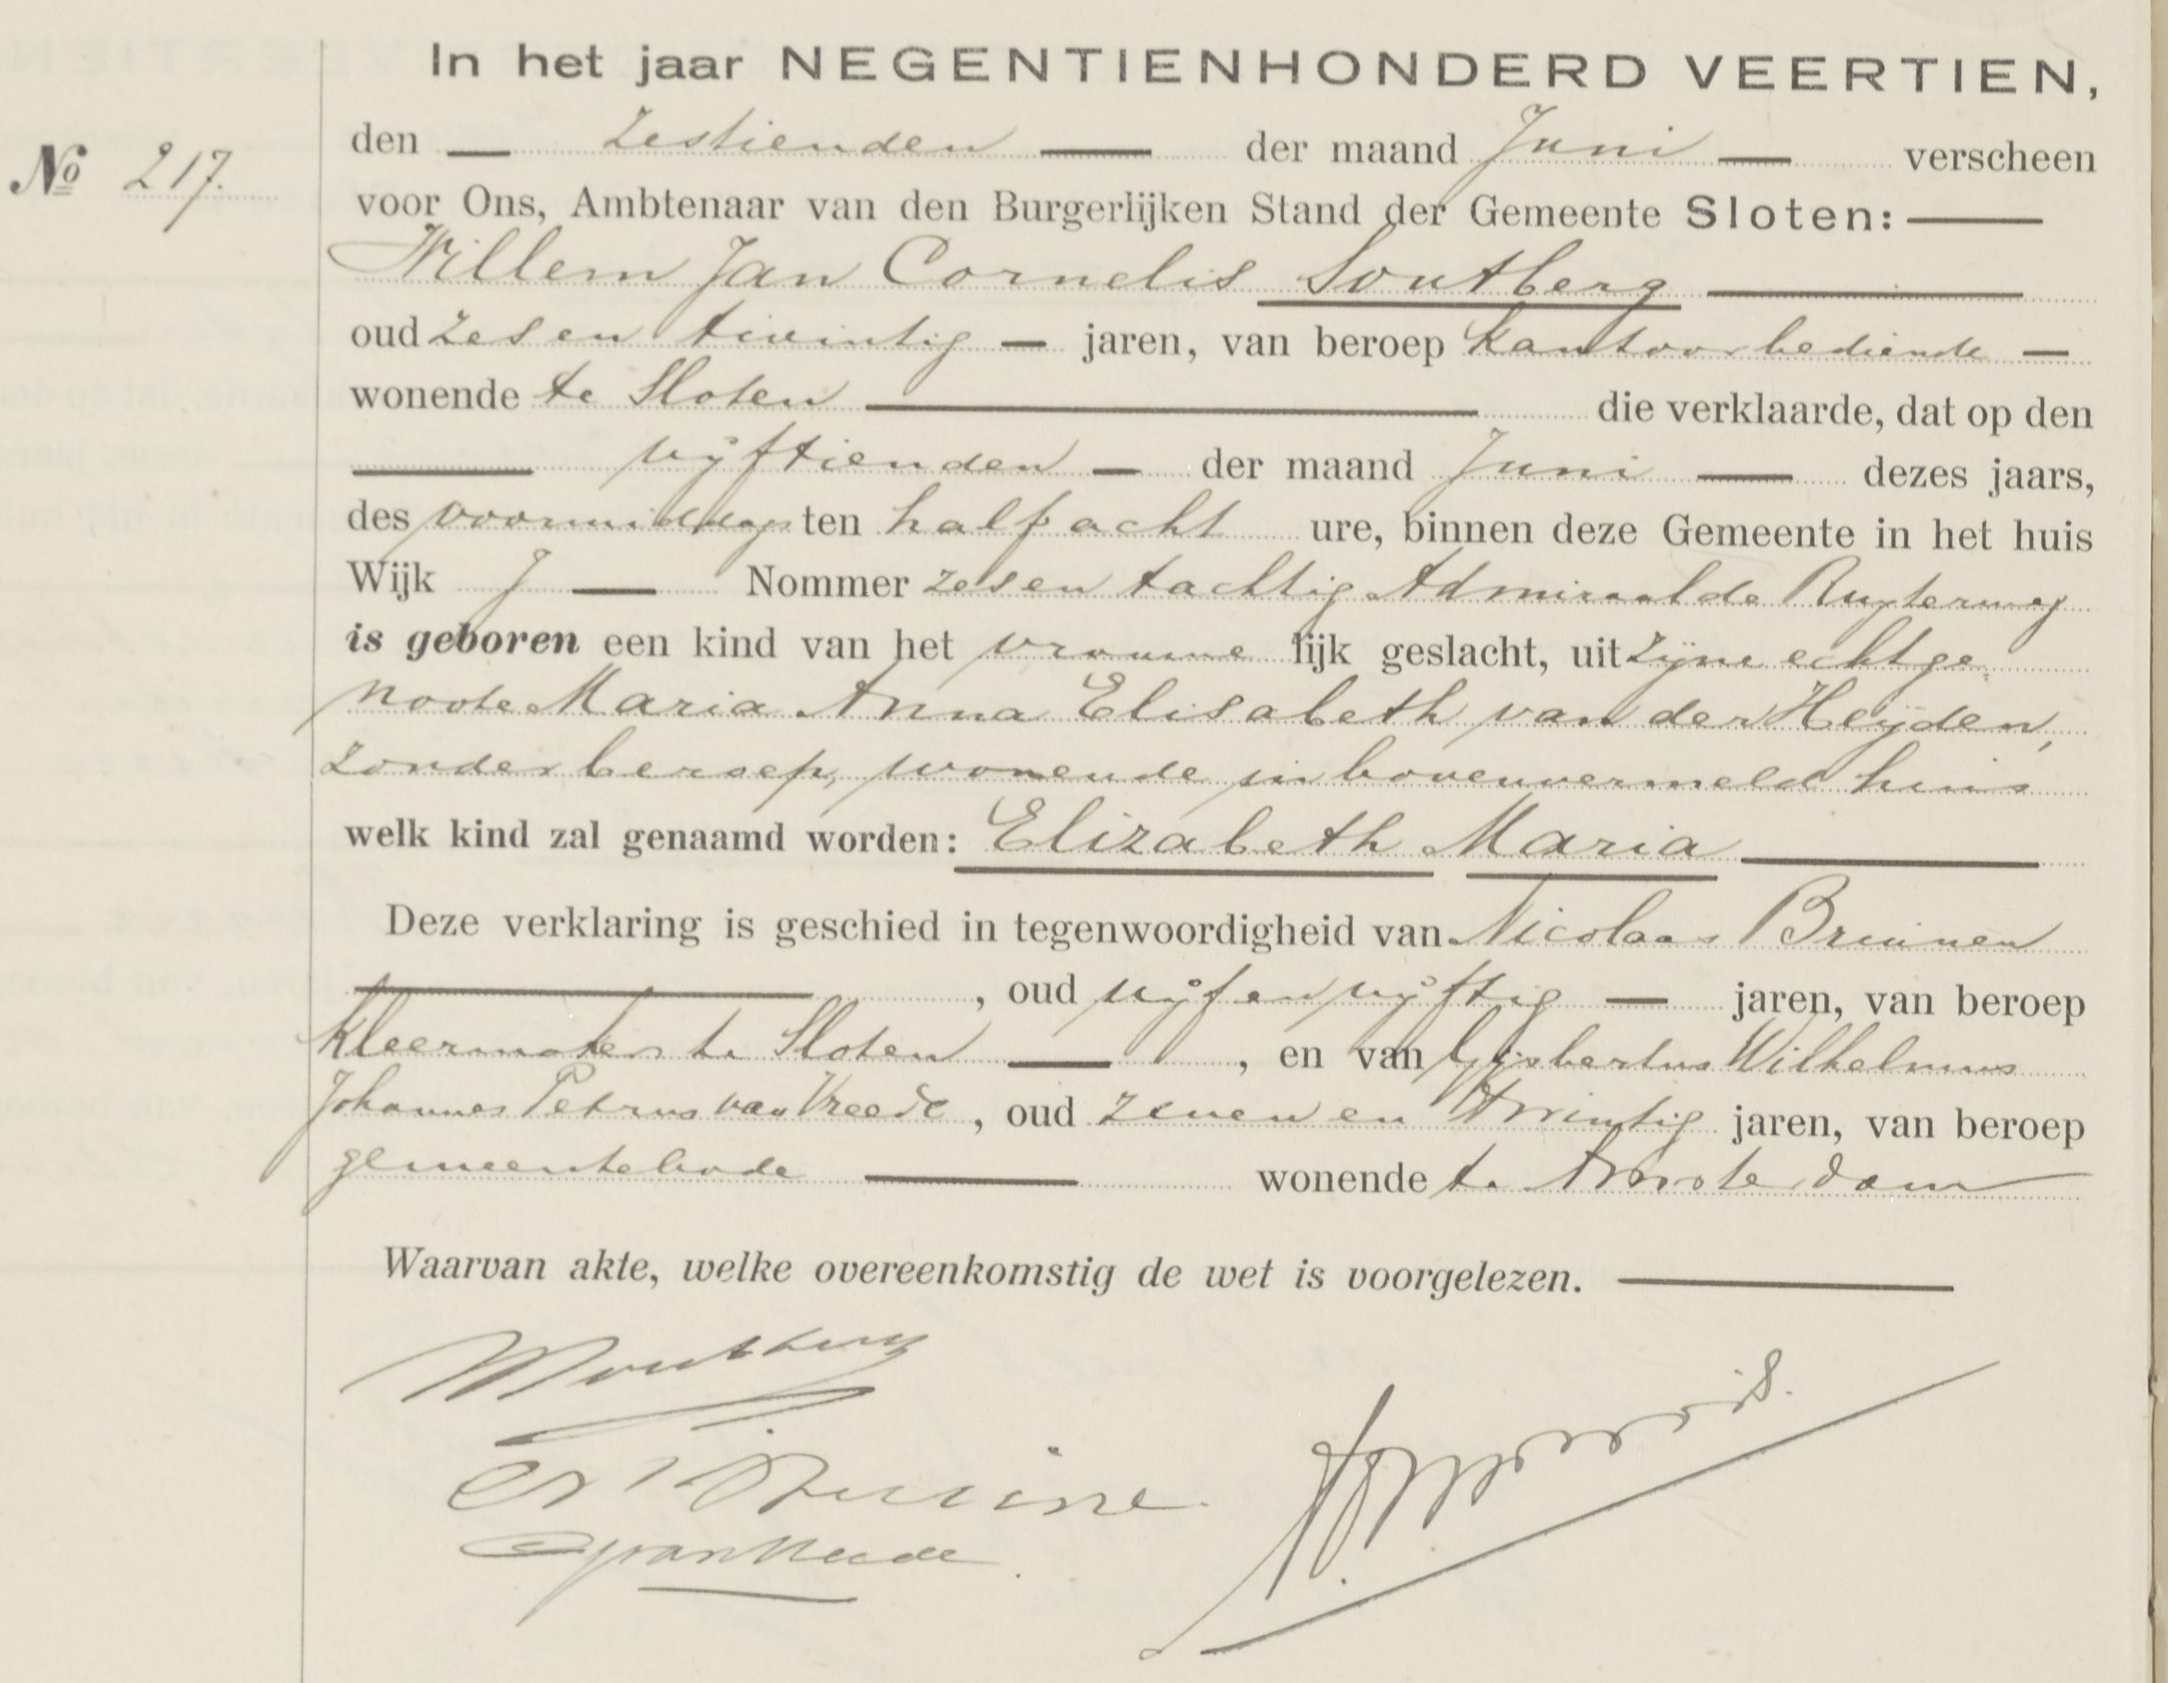 In het jaar NEGENTIENHONDERD VEERTIEN,
No 217.
den zestienden der maand Juni verscheen
voor Ons, Ambtenaar van den Burgerlijken Stand der Gemeente Sloten:
Willem Jan Cornelis Soutberg
oud zes en twintig jaren, van beroep kantoorbediende
wonende te Sloten die verklaarde, dat op den
vijftienden der maand Juni dezes jaars,
des voormiddags ten half acht ure, binnen deze Gemeente in het huis
Wijk J Nommer zes en tachtig Admiraal de Ruyterweg
is geboren een kind van het vrouwe lijk geslacht, uit zijne echtge
noote Maria Anna Elisabeth van der Heijden,
zonder beroep, wonende in bovenvermeld huis
welk kind zal genaamd worden: Elizabeth Maria
Deze verklaring is geschied in tegenwoordigheid van Nicolaas Bruinen
, oud vijf en vijftig jaren, van beroep
kleermaker te Sloten , en van Gijsbertus Wilhelmus
Johannes Petrus van Vreede , oud zeven en twintig jaren, van beroep
gemeentebode wonende te Amsterdam
Waarvan akte, welke overeenkomstig de wet is voorgelezen.